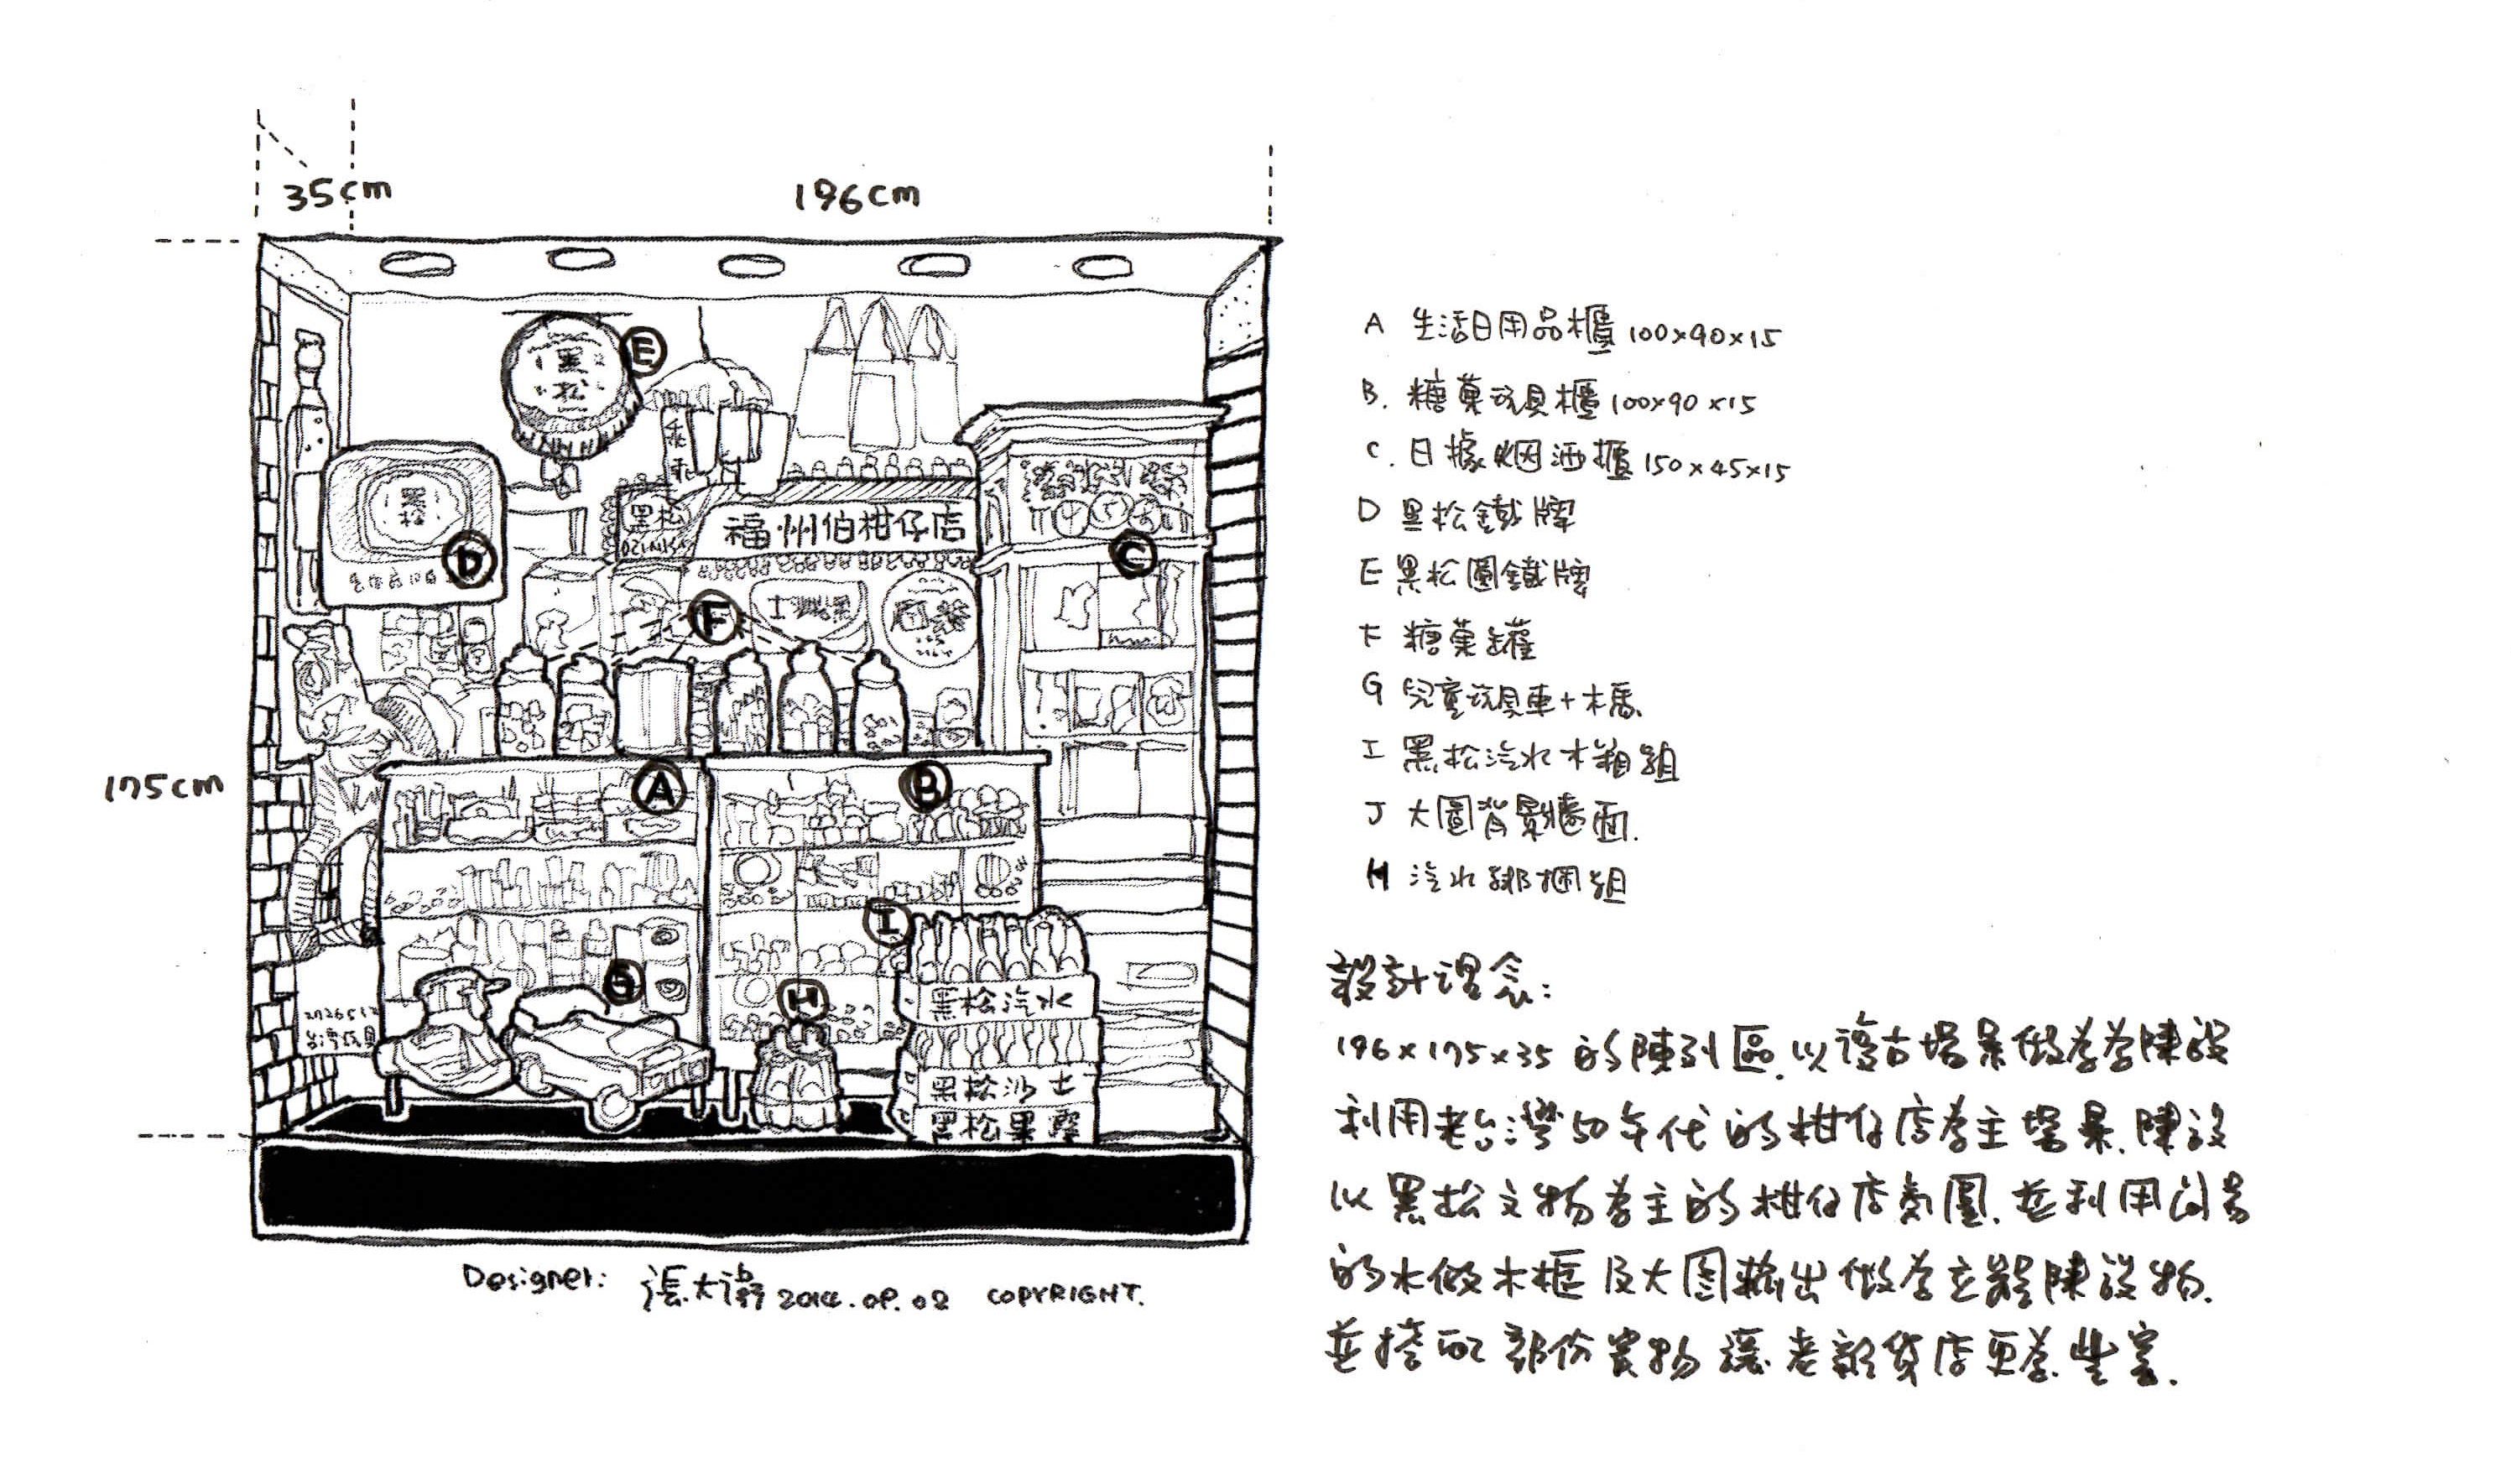 35cm
196cm
175cm
黑松
E
黑松
D
黑松
福州伯柑仔店
C
F
A
B
I
G
H
黑松汽水
黑松沙士
黑松果
台灣玩具
Designer: 張大衛 2014.09.02 COPYRIGHT.
A 生活日用品櫃 100x90x15
B. 糖菓玩具櫃 100x90x15
C. 日據烟酒櫃 150x45x15
D 黑松鐵牌
E 黑松圓鐵牌
F 糖菓罐
G 兒童玩具車+木馬
I 黑松汽水木箱組
J 大圖背景牆面.
H 汽水綁捆組
設計理念:
196x175x35 的陳列區.以復古場景做為陳設
利用老台灣50年代的柑仔店為主場景.陳設
以黑松文物為主的柑仔店氛圍.並利用
的木做木框及大圖輸出做為主體陳設物.
並搭配部份實物讓老雜貨店更為豐富.